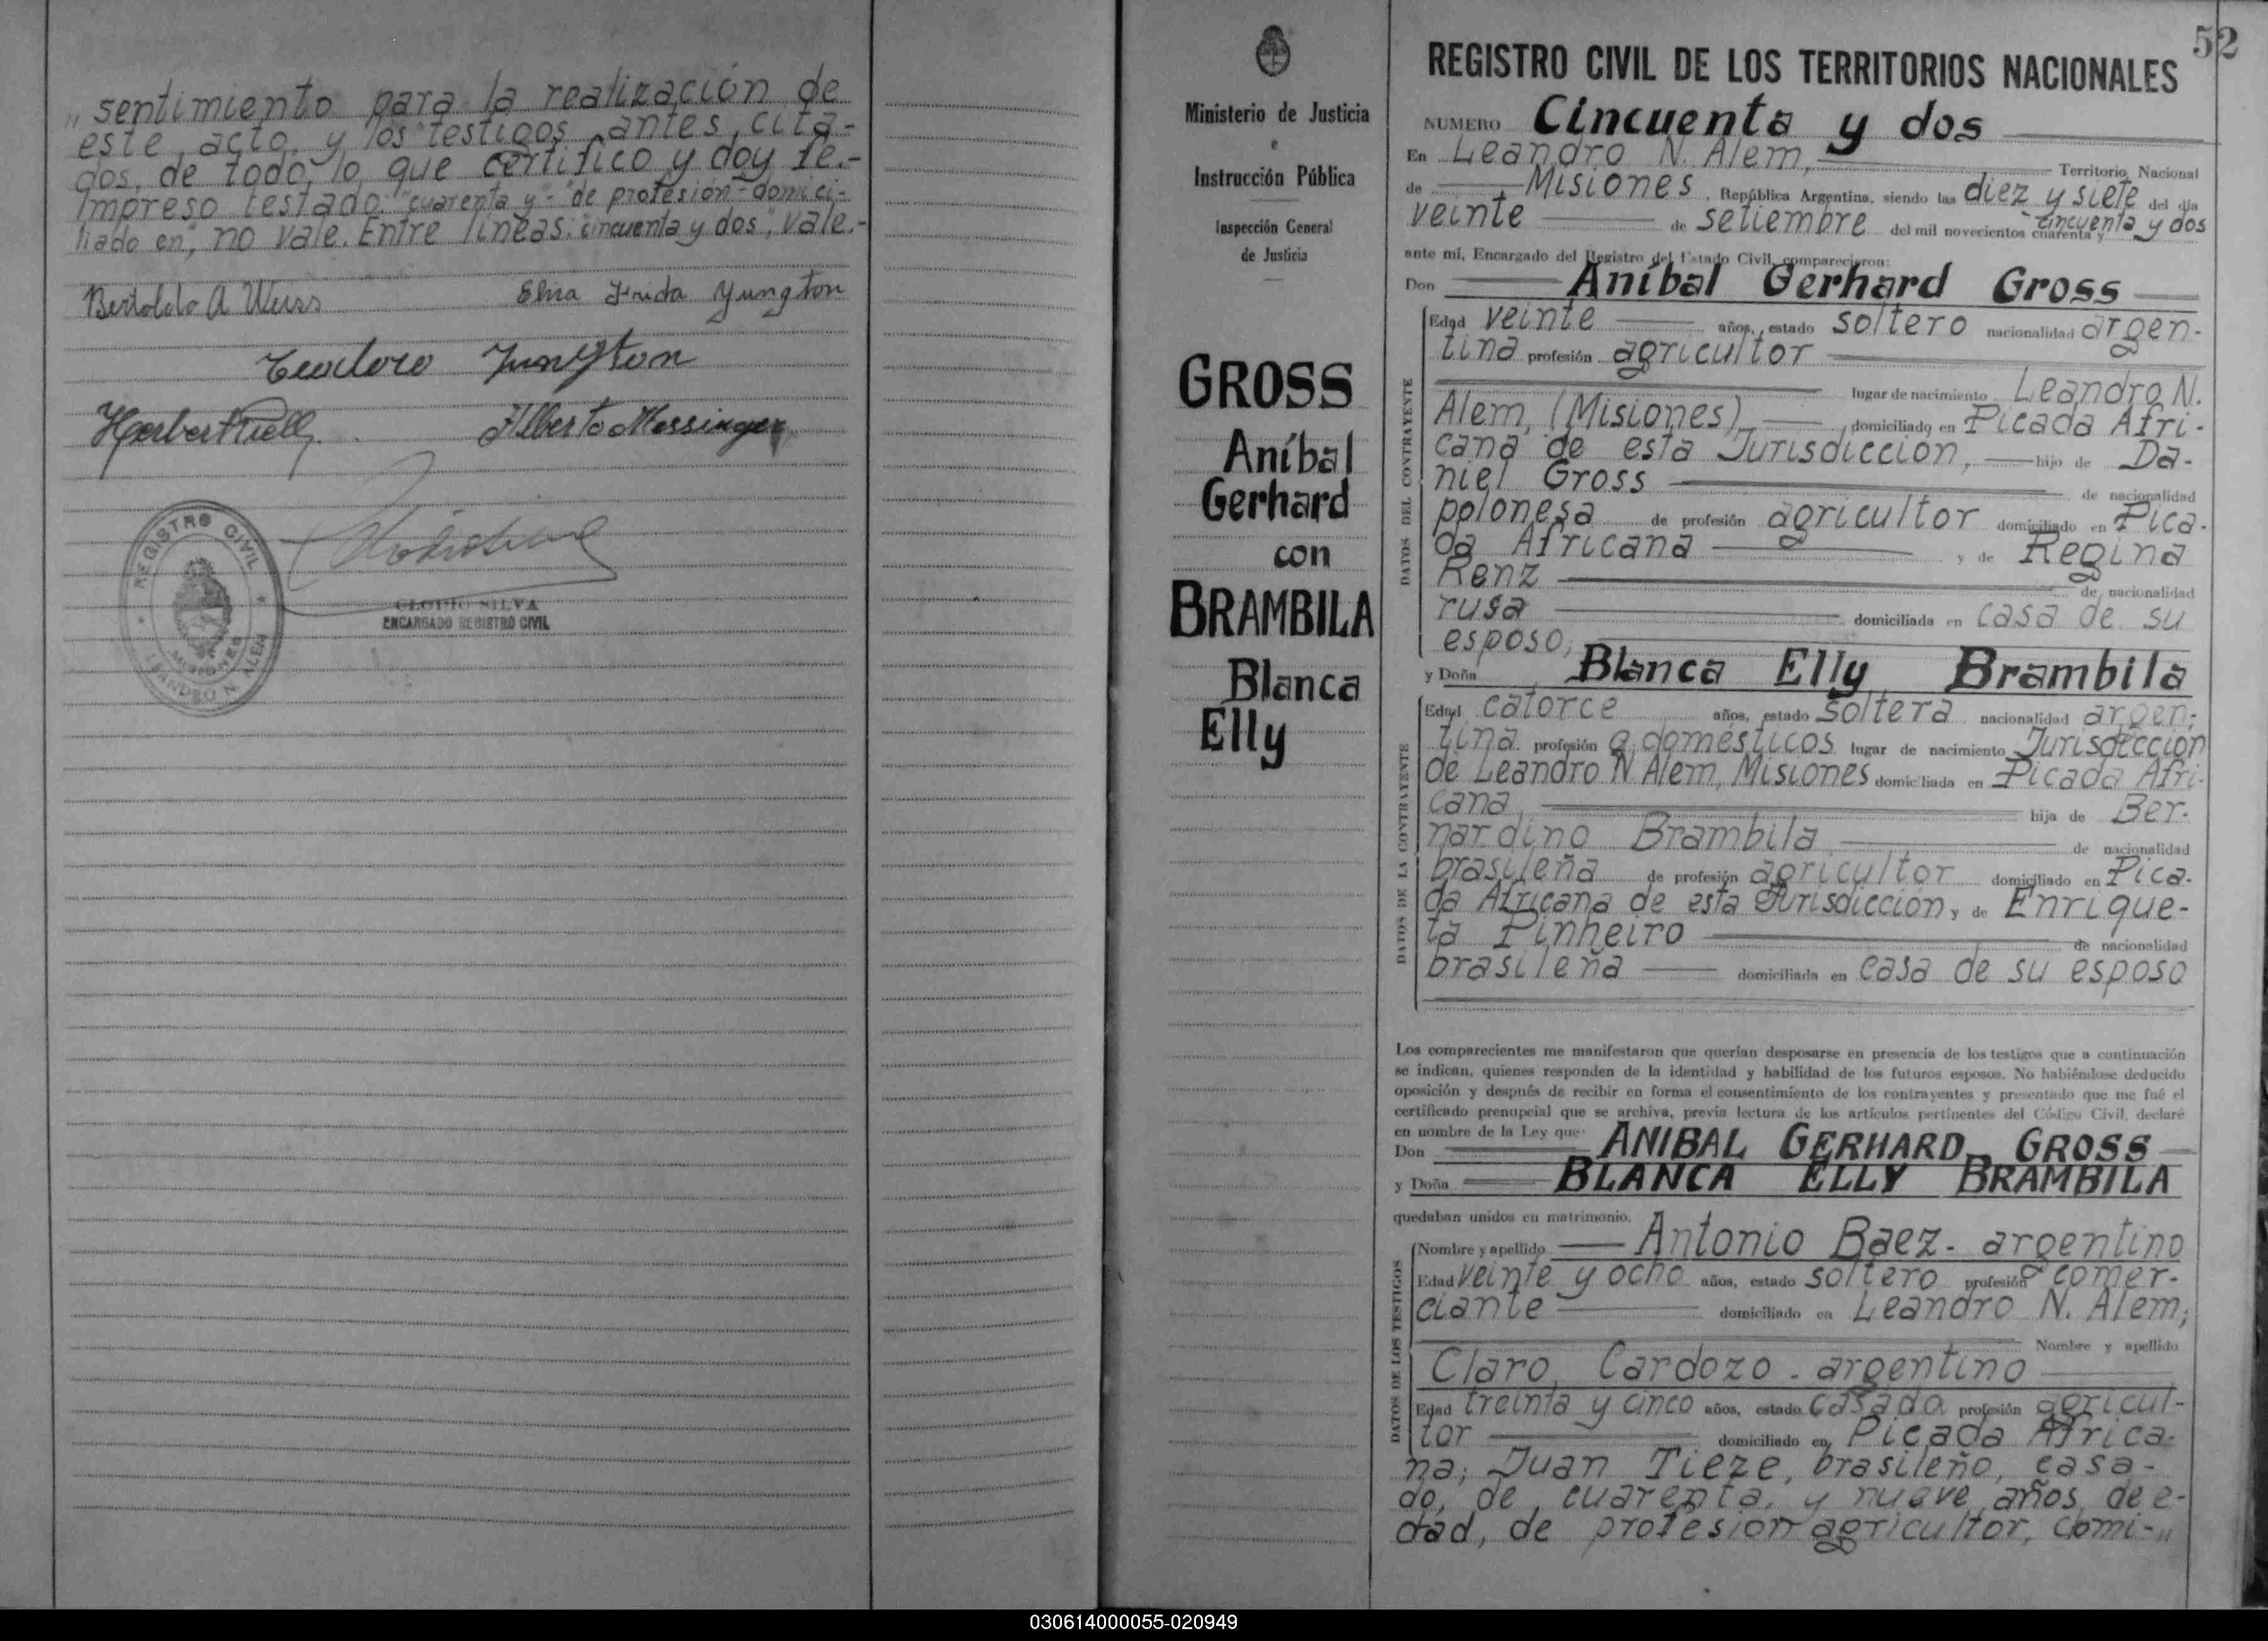 „sentimiento para la realización de
este acto, y los testigos antes cita-
dos, de todo lo que certifico y doy fe.-
Impreso testado: "cuarenta y"- "de profesión- domici-
liado en", no vale. Entre lineas: "cincuenta y dos", vale.-
Bertoldo A Weiss Elsira Frida Yungton
Teodoro Jungton
Alberto Messinger
REGISTRO CIVIL
MISIONES
LEANDRO N. ALEM
CLODIO SILVA
ENCARGADO REGISTRO CIVIL
Ministerio de Justicia
e
Instrucción Pública
Inspección General
de Justicia
GROSS
Aníbal
Gerhard
con
BRAMBILA
Blanca
Elly
52
REGISTRO CIVIL DE LOS TERRITORIOS NACIONALES
NUMERO Cincuenta y dos
En Leandro N. Alem, Territorio Nacional
de Misiones, República Argentina, siendo las diez y siete del día
veinte de setiembre del mil novecientos cuarenta y cincuenta y dos
ante mí, Encargado del Registro del Estado Civil, comparecieron:
Don Aníbal Gerhard Gross
DATOS DEL CONTRAYENTE
Edad veinte años, estado soltero nacionalidad argen-
tina profesión agricultor
lugar de nacimiento Leandro N.
Alem, (Misiones) domiciliado en Picada Afri-
cana de esta Jurisdicción, hijo de Da-
niel Gross de nacionalidad
polonesa de profesión agricultor domiciliado en Pica-
da Africana y de Regina
Renz de nacionalidad
rusa domiciliada en casa de su
esposo,
y Doña Blanca Elly Brambila
DATOS DE LA CONTRAYENTE
Edad catorce años, estado soltera nacionalidad argen-
tina profesión q. domésticos lugar de nacimiento Jurisdicción
de Leandro N. Alem, Misiones domiciliada en Picada Afri-
cana hija de Ber-
nardino Brambila de nacionalidad
brasileña de profesión agricultor domiciliado en Pica-
da Africana de esta Jurisdicción, y de Enrique-
ta Pinheiro de nacionalidad
brasileña domiciliada en casa de su esposo
Los comparecientes me manifestaron que querían desposarse en presencia de los testigos que a continuación
se indican, quienes responden de la identidad y habilidad de los futuros esposos. No habiéndose deducido
oposición y después de recibir en forma el consentimiento de los contrayentes y presentado que me fué el
certificado prenupcial que se archiva, previa lectura de los artículos pertinentes del Código Civil, declaré
en nombre de la Ley que:
Don ANIBAL GERHARD GROSS
y Doña BLANCA ELLY BRAMBILA
quedaban unidos en matrimonio.
DATOS DE LOS TESTIGOS
Nombre y apellido Antonio Baez- argentino
Edad veinte y ocho años, estado soltero profesión comer-
ciante domiciliado en Leandro N. Alem;
Nombre y apellido
Claro Cardozo - argentino
Edad treinta y cinco años, estado casado profesión agricul-
tor domiciliado en Picada Africa-
na; Juan Tieze, brasileño, casa-
do, de cuarenta y nueve años de e-
dad, de profesión agricultor, domi-„
030614000055-020949